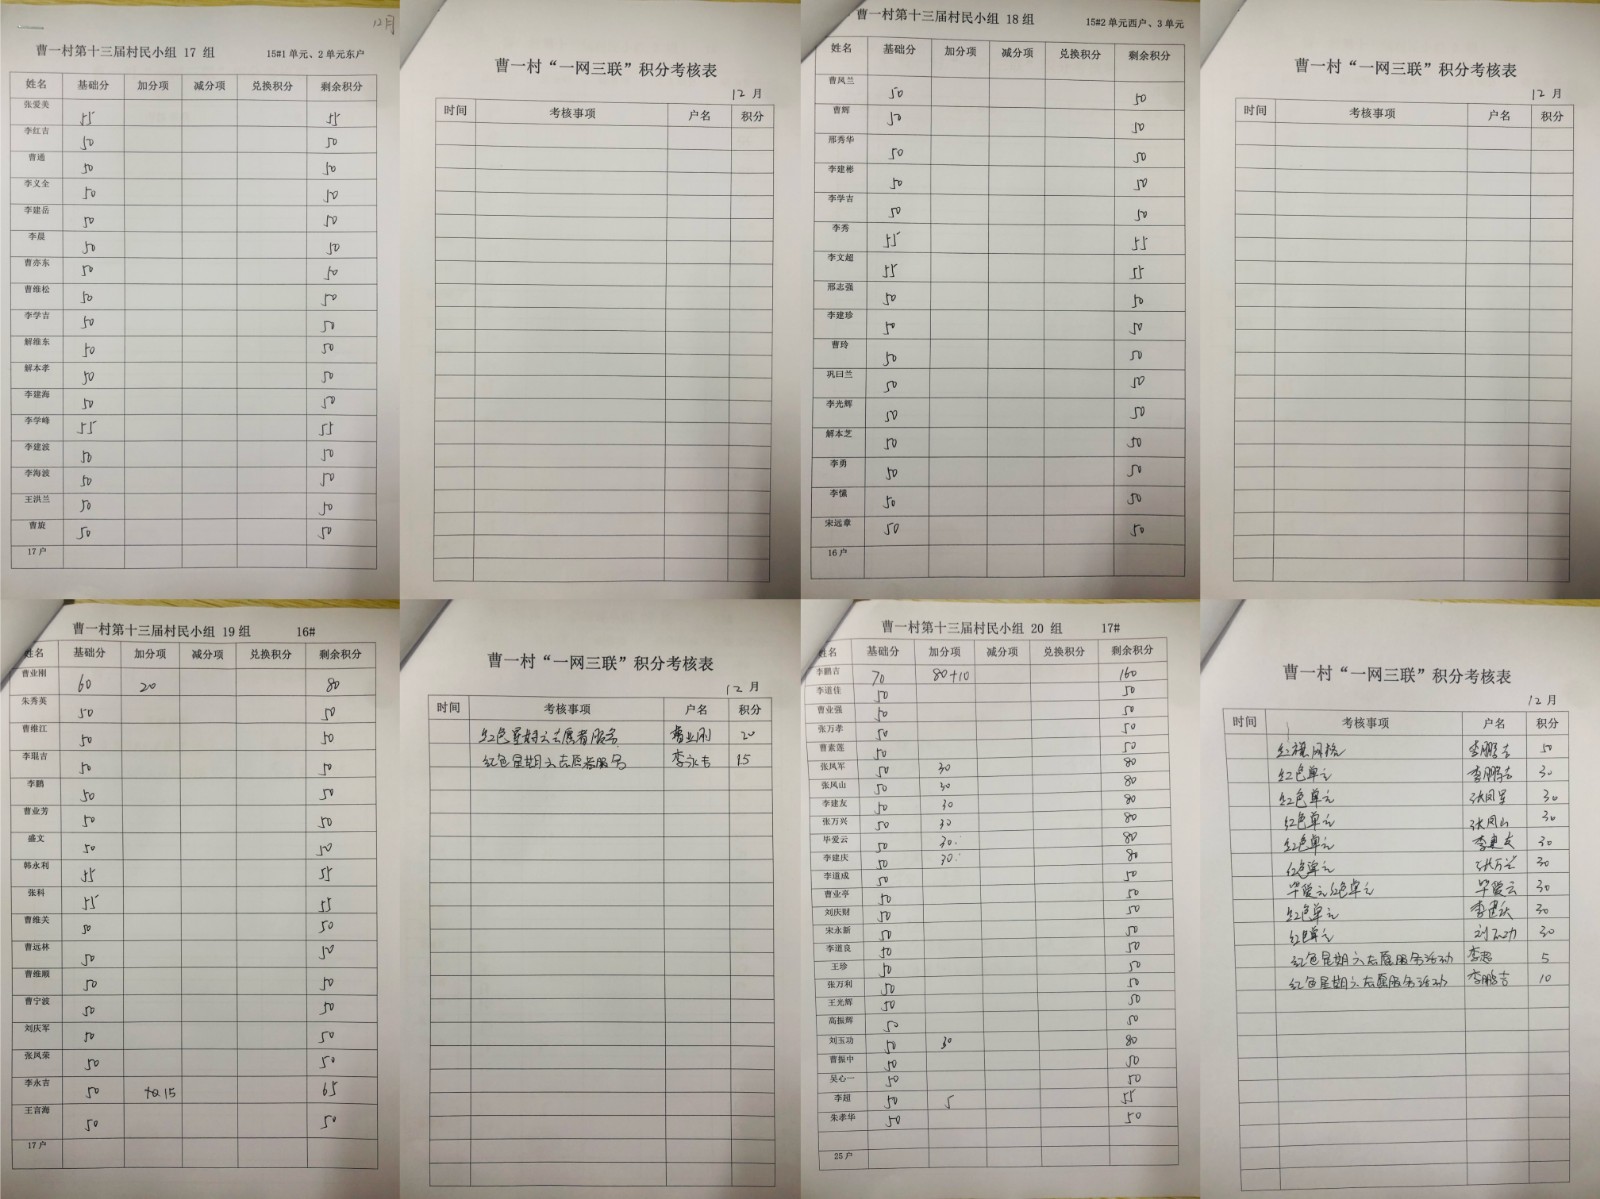 12月
曹一村第十三届村民小组 17 组 15#1 单元、2 单元东户
姓名 基础分 加分项 减分项 兑换积分 剩余积分
张爱美 55 55
李红吉 50 50
曹通 50 50
李义全 50 50
李建岳 50 50
李晨 50 50
曹亦东 50 50
曹维松 50 50
李学吉 50 50
解维东 50 50
解本孝 50 50
李建海 50 50
李学峰 55 55
李建波 50 50
李海波 50 50
王洪兰 50 50
曹旋 50 50
17 户
曹一村“一网三联”积分考核表
12 月
时间 考核事项 户名 积分
曹一村第十三届村民小组 18 组 15#2 单元西户、3 单元
姓名 基础分 加分项 减分项 兑换积分 剩余积分
曹凤兰 50 50
曹辉 50 50
邢秀华 50 50
李建彬 50 50
李学吉 50 50
李秀 55 55
李文超 55 55
邢志强 50 50
李建珍 50 50
曹玲 50 50
巩曰兰 50 50
李光辉 50 50
解本芝 50 50
李勇 50 50
李慷 50 50
宋远章 50 50
16 户
曹一村“一网三联”积分考核表
12 月
时间 考核事项 户名 积分
曹一村第十三届村民小组 19 组 16#
姓名 基础分 加分项 减分项 兑换积分 剩余积分
曹业刚 60 20 80
朱秀英 50 50
曹维江 50 50
李琨吉 50 50
李鹏 50 50
曹业芳 50 50
盛文 50 50
韩永利 55 55
张科 55 55
曹维关 50 50
曹远林 50 50
曹维顺 50 50
曹宁波 50 50
刘庆军 50 50
张凤荣 50 50
李永吉 50 15 65
王言海 50 50
17 户
曹一村“一网三联”积分考核表
12 月
时间 考核事项 户名 积分
红色星期六志愿者服务 曹业刚 20
红色星期六志愿者服务 李永吉 15
曹一村第十三届村民小组 20 组 17#
姓名 基础分 加分项 减分项 兑换积分 剩余积分
李鹏吉 70 80+10 160
李道佳 50 50
曹业强 50 50
张万孝 50 50
曹素莲 50 50
张凤军 50 30 80
张凤山 50 30 80
李建友 50 30 80
张万兴 50 30 80
毕爱云 50 30 80
李建庆 50 30 80
李道成 50 50
曹业亭 50 50
刘庆财 50 50
宋永新 50 50
李道良 50 50
王珍 50 50
张万利 50 50
王光辉 50 50
高振辉 50 50
刘玉功 50 30 80
曹振中 50 50
吴心一 50 50
李超 50 5 55
朱孝华 50 50
25 户
曹一村“一网三联”积分考核表
12 月
时间 考核事项 户名 积分
红旗网格 李鹏吉 50
红色单元 李鹏吉 30
红色单元 30
红色单元 张凤山 30
红色单元 李建友 30
红色单元 张万兴 30
毕爱云红色单元 毕爱云 30
红色单元 李建庆 30
红色单元 刘玉功 30
红色星期六志愿服务活动 李超 5
红色星期六志愿服务活动 李鹏吉 10